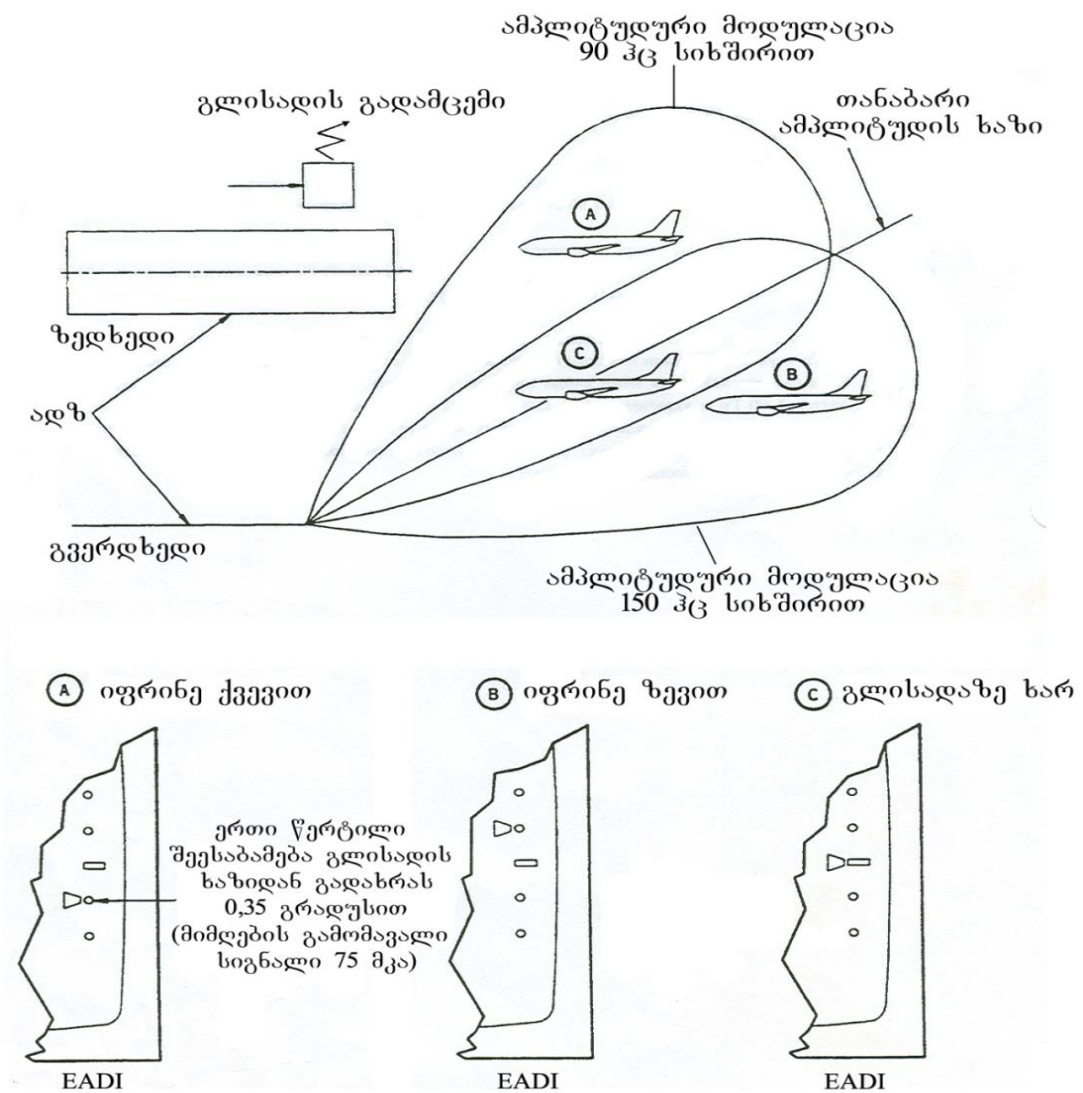 ამპლიტუდური მოდულაცია
90 ჰც სიხშირით
გლისადის გადამცემი
თანაბარი
ამპლიტუდის ხაზი
A
ზედხედი
C
B
ადზ
გვერდხედი
ამპლიტუდური მოდულაცია
150 ჰც სიხშირით
A იფრინე ქვევით
B იფრინე ზევით
C გლისადაზე ხარ
ერთი წერტილი
შეესაბამება გლისადის
ხაზიდან გადახრას
0,35 გრადუსით
(მიმღების გამომავალი
სიგნალი 75 მკა)
EADI
EADI
EADI